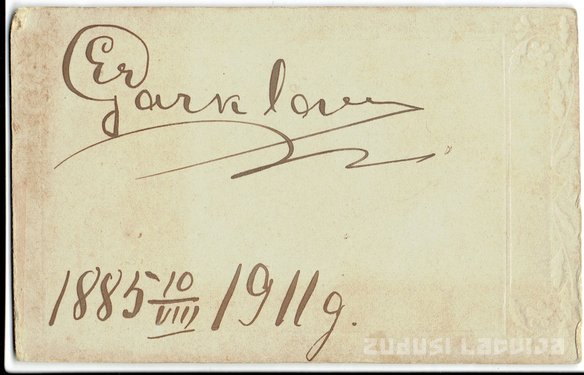 Er Garklav
1885 10/VIII 1911g.
ZUDUSI LATVIJA